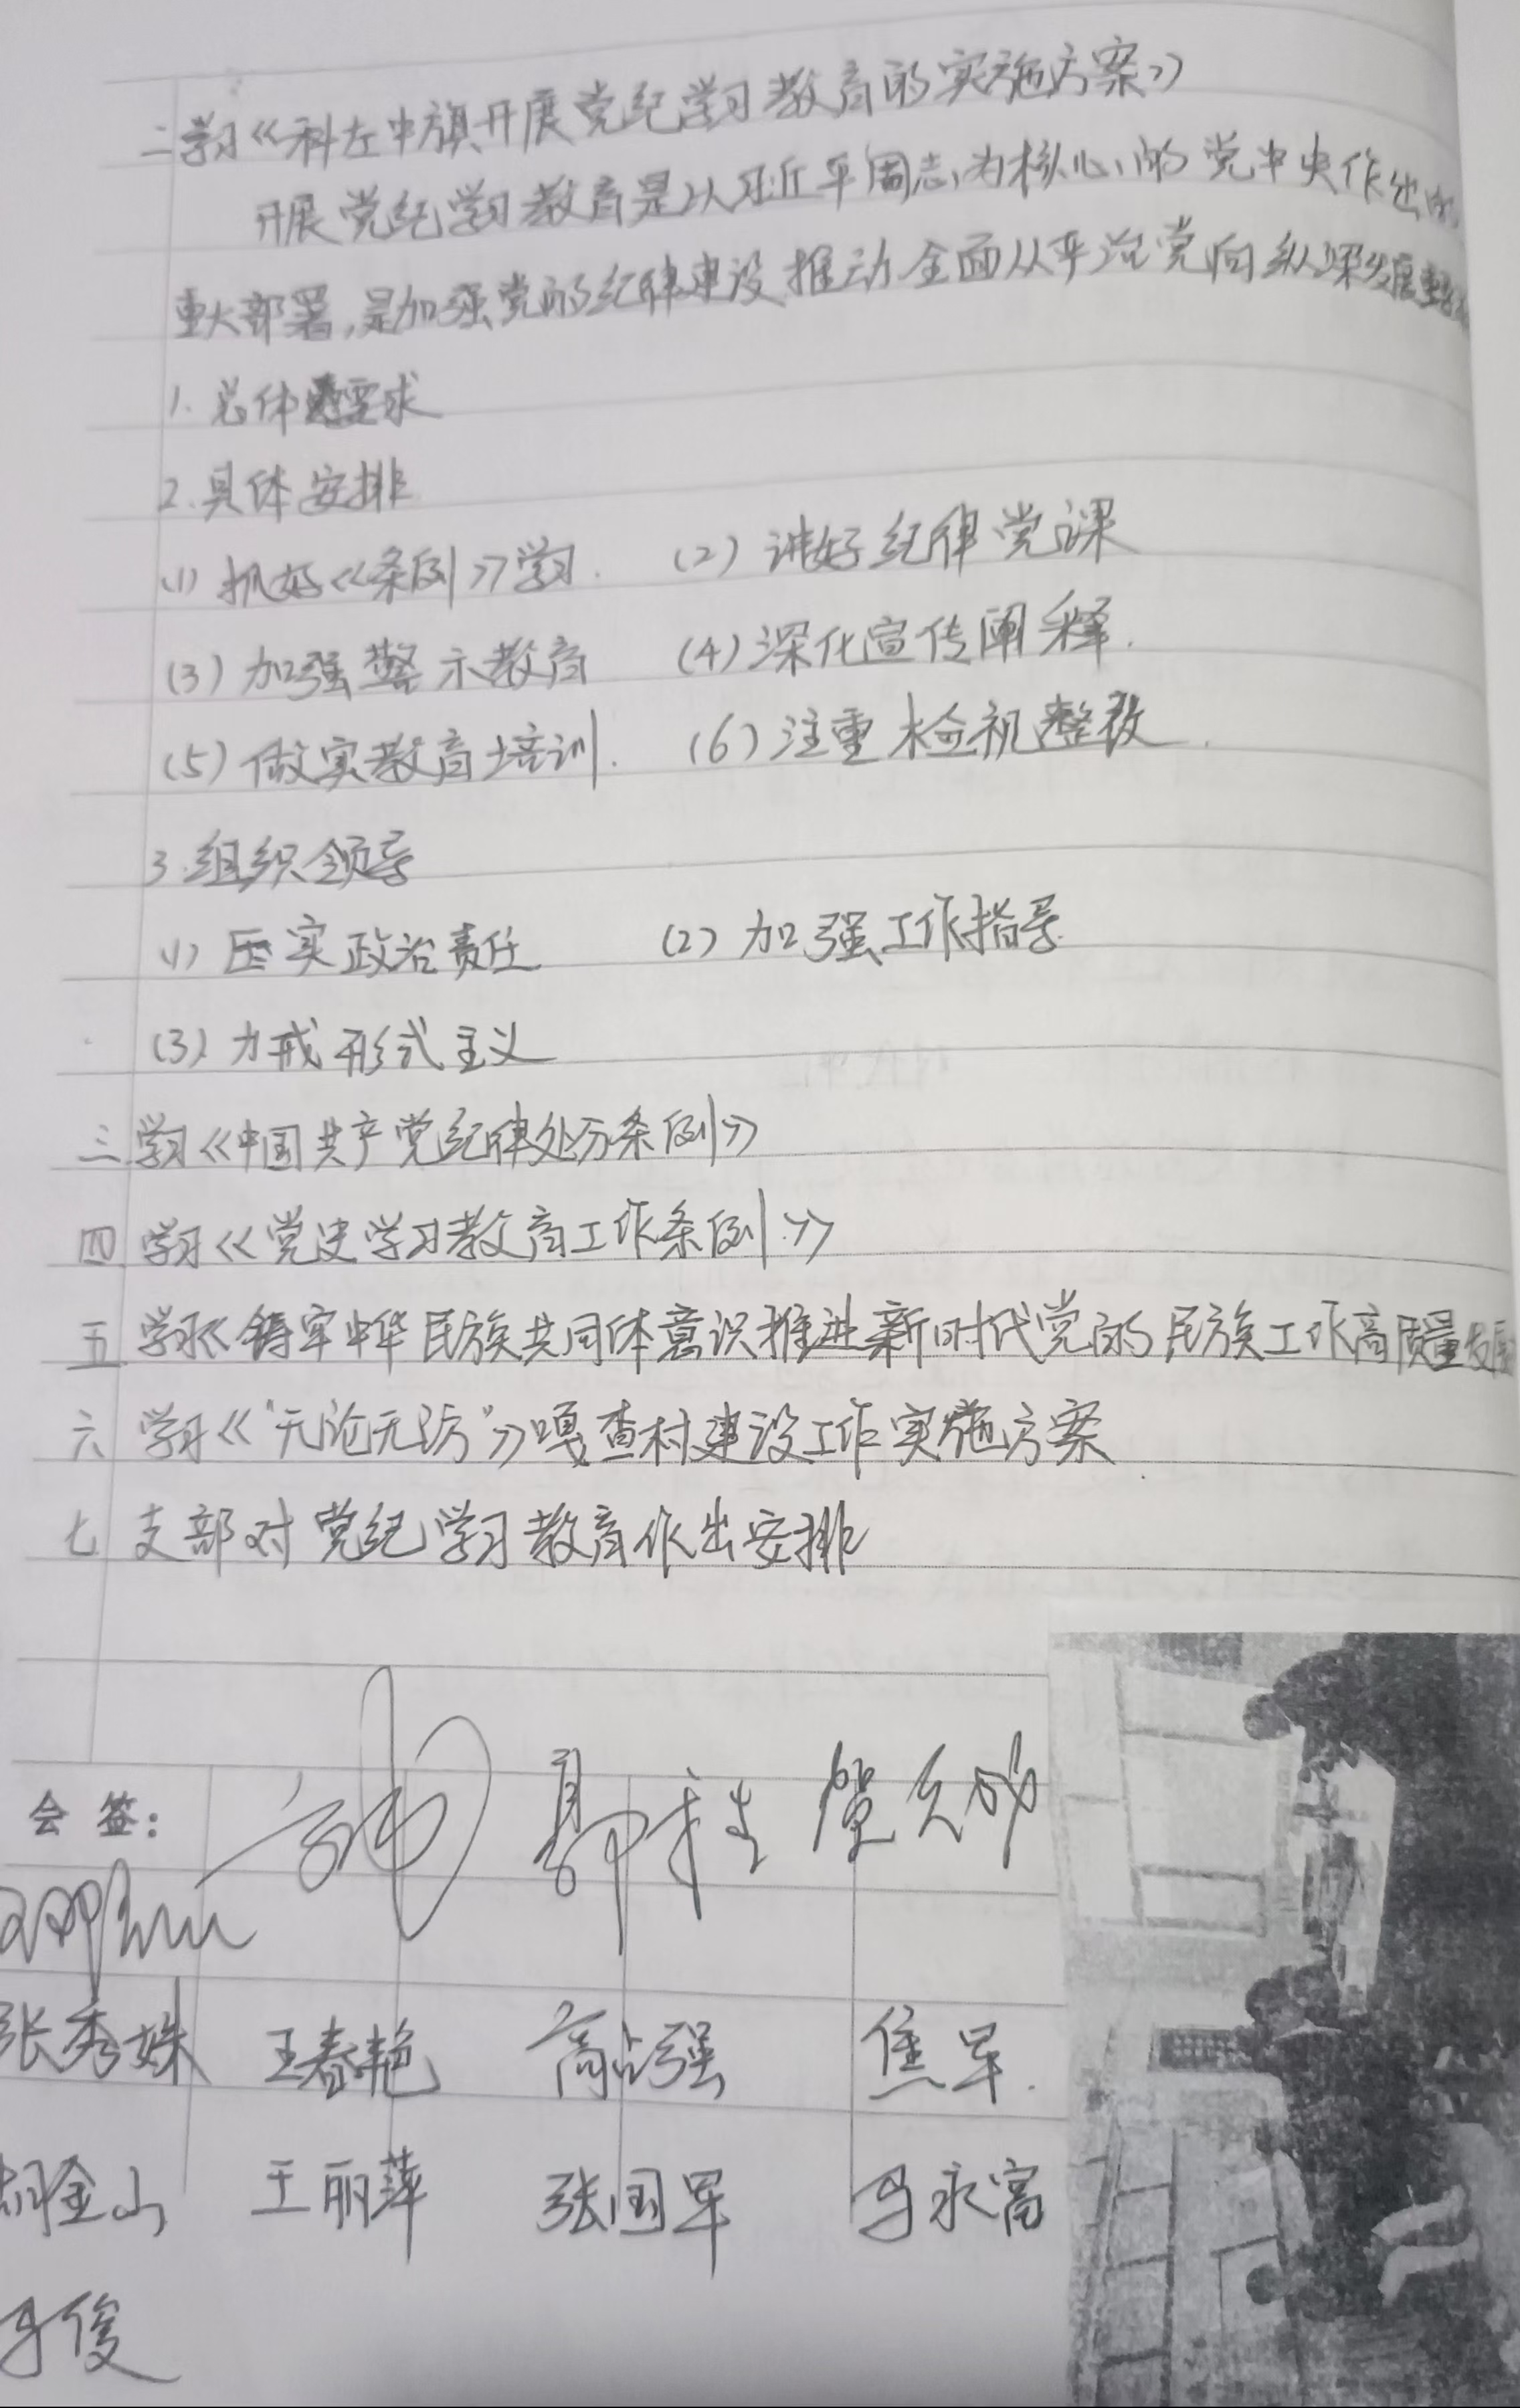 二学习《科左中旗开展党纪学习教育的实施方案》
开展党纪学习教育是以习近平同志为核心的党中央作出的
重大部署,是加强党的纪律建设推动全面从严治党向纵深发展重
1.总体要求
2.具体安排
(1)抓好《条例》学习. (2)讲好纪律党课
(3)加强警示教育 (4)深化宣传阐释.
(5)做实教育培训. (6)注重检视整改.
3.组织领导
(1)压实政治责任 (2)加强工作指导.
(3)力戒形式主义
三学习《中国共产党纪律处分条例》
四学习《党史学习教育工作条例》
五学习《铸牢中华民族共同体意识推进新时代党的民族工作高质量发展
六学习《“无讼无访”》嘎查村建设工作实施方案.
七支部对党纪学习教育作出安排
会签: 贺久成
张秀姝 王春艳 高占强 焦军.
胡金山 王丽萍 张国军 马永富